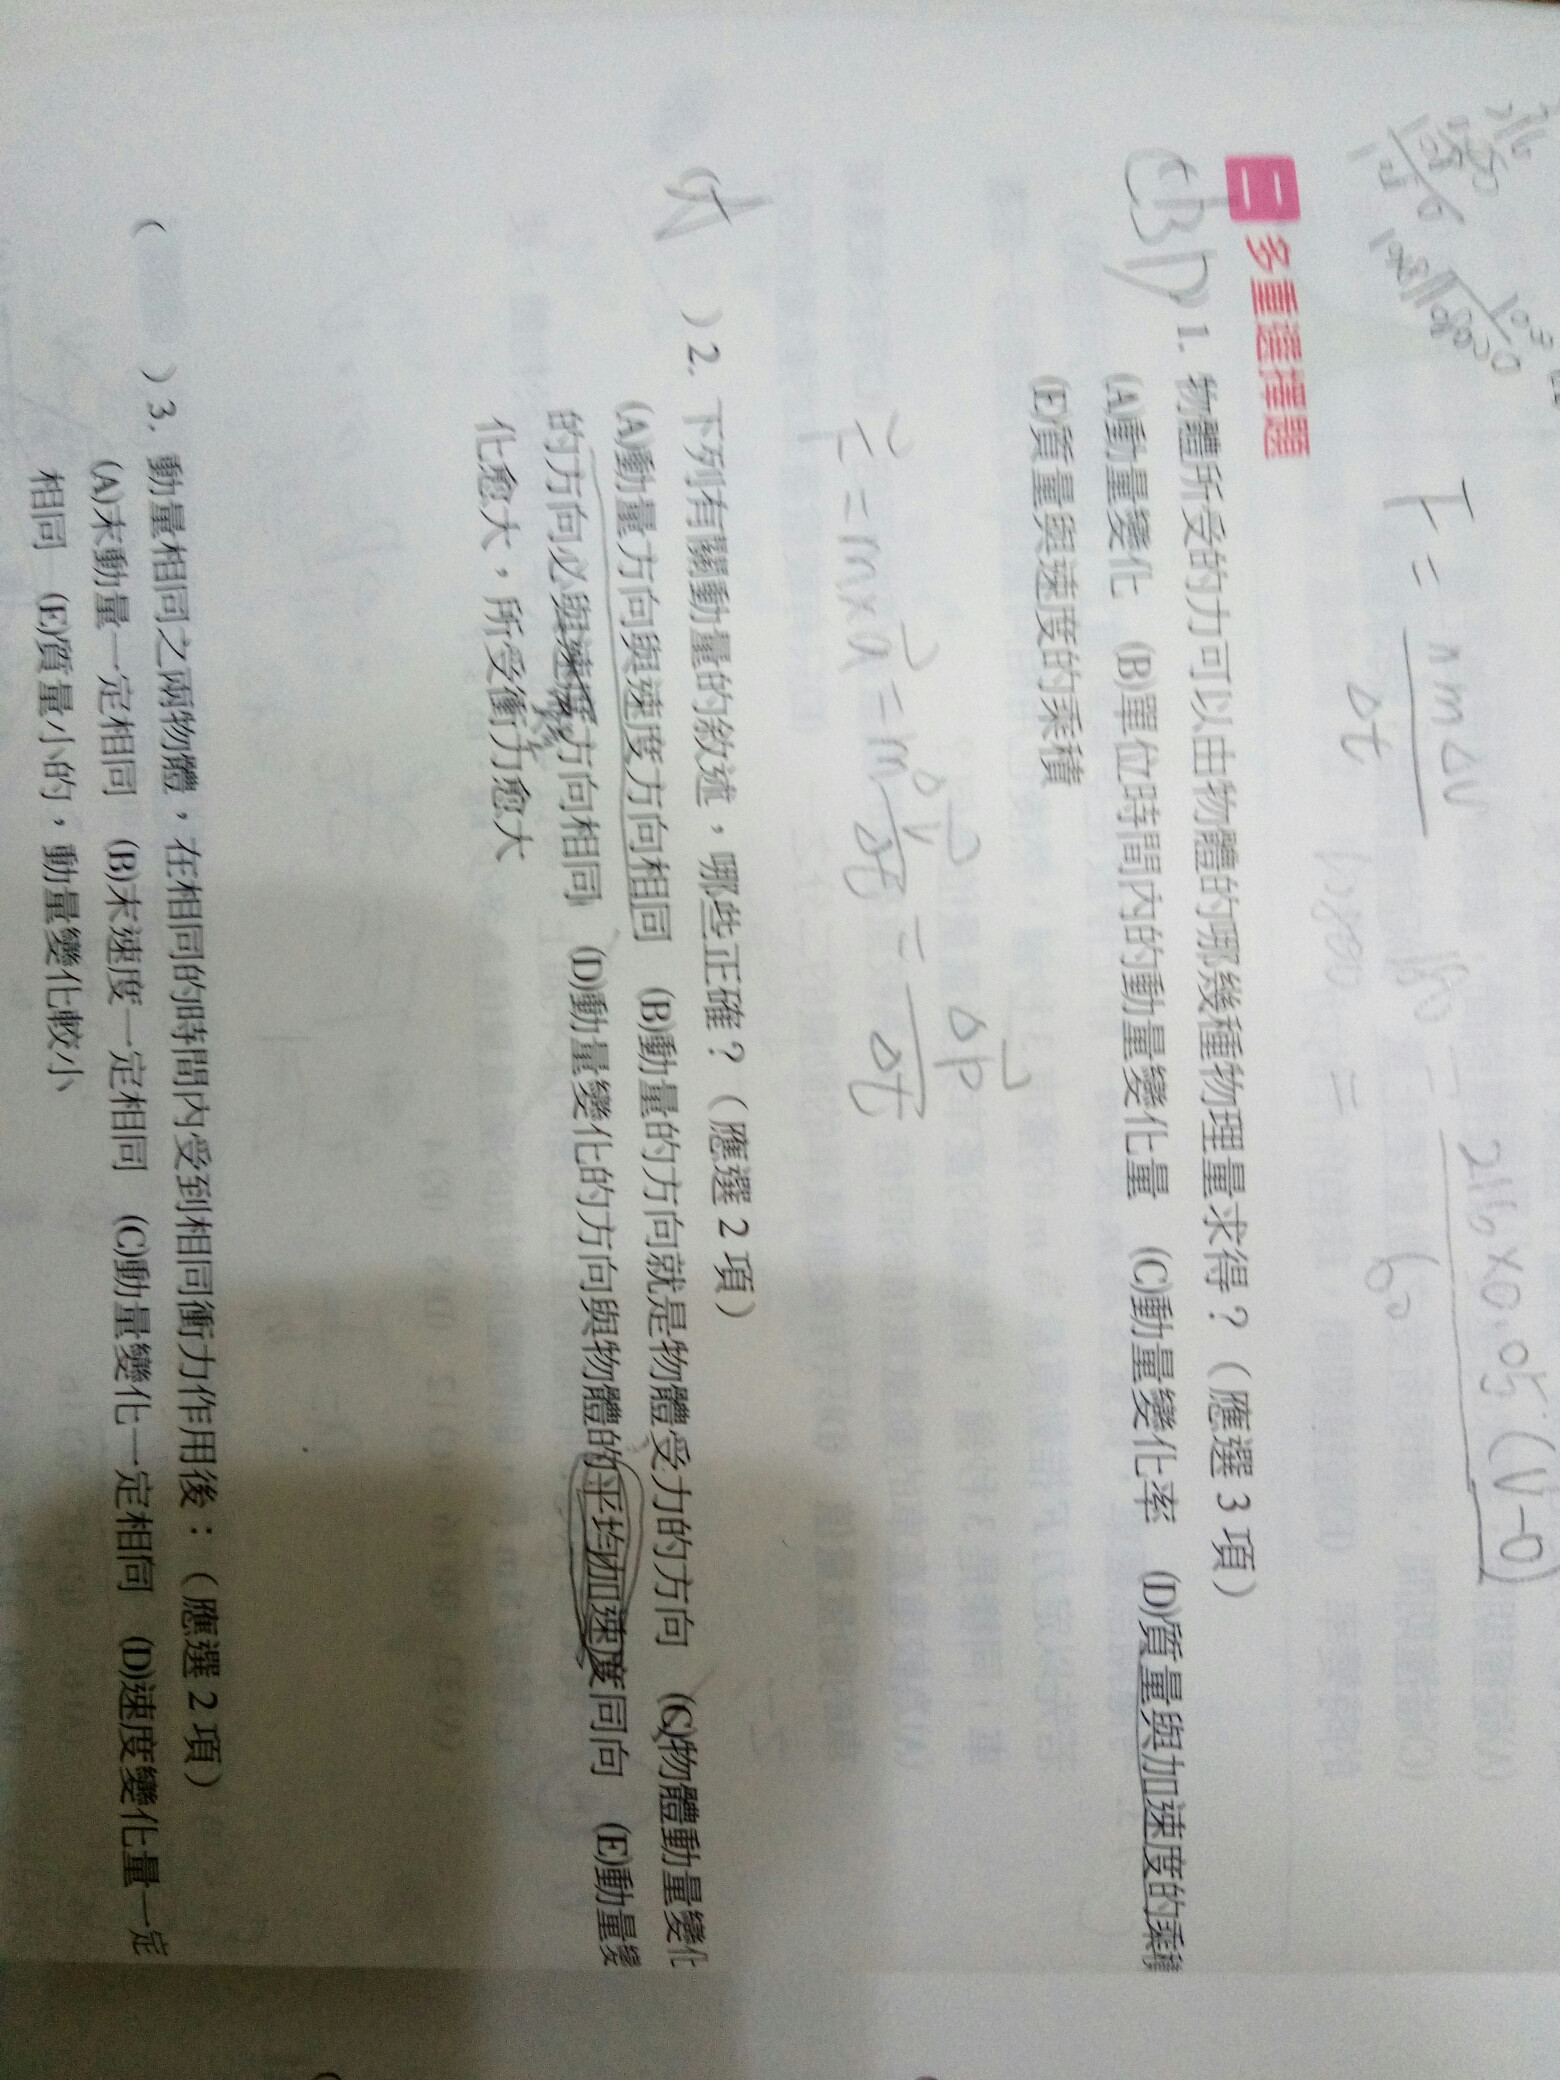 F = nmΔv / Δt
180 = 216×0.05(V-0) / 60
10800 =
二 多重選擇題
CBD ) 1. 物體所受的力可以由物體的哪幾種物理量求得？（應選 3 項）
(A)動量變化 (B)單位時間內的動量變化量 (C)動量變化率 (D)質量與加速度的乘積
(E)質量與速度的乘積
F = m×a = m Δv / Δt = Δp / Δt
) 2. 下列有關動量的敘述，哪些正確？（應選 2 項）
(A)動量方向與速度方向相同 (B)動量的方向就是物體受力的方向 (C)物體動量變化
的方向必與速度方向相同 (D)動量變化的方向與物體的平均加速度同向 (E)動量變
化愈大，所受衝力愈大
( ) 3. 動量相同之兩物體，在相同的時間內受到相同衝力作用後：（應選 2 項）
(A)末動量一定相同 (B)末速度一定相同 (C)動量變化一定相同 (D)速度變化量一定
相同 (E)質量小的，動量變化較小